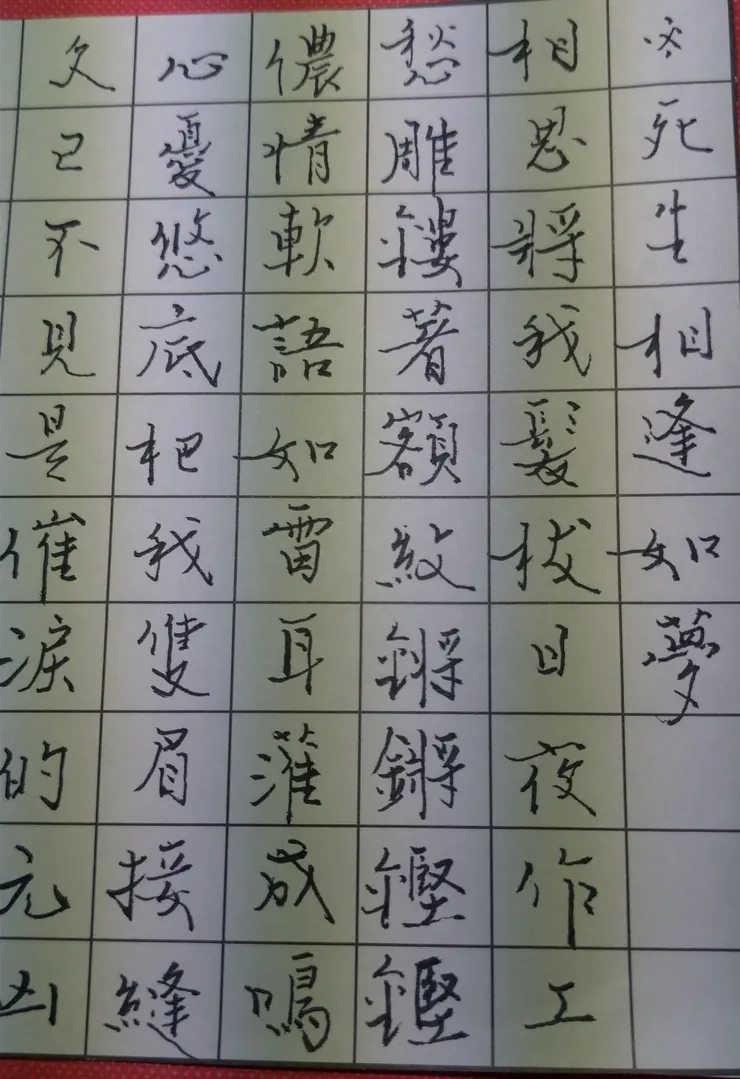 久已不見是催淚的元凶
心憂悠底把我隻眉接縫
儂情軟語如雷耳灌成鳴
愁雕鏤著額紋鏘鏘鏗鏗
相思將我髮拔日夜作工
死生相逢如夢